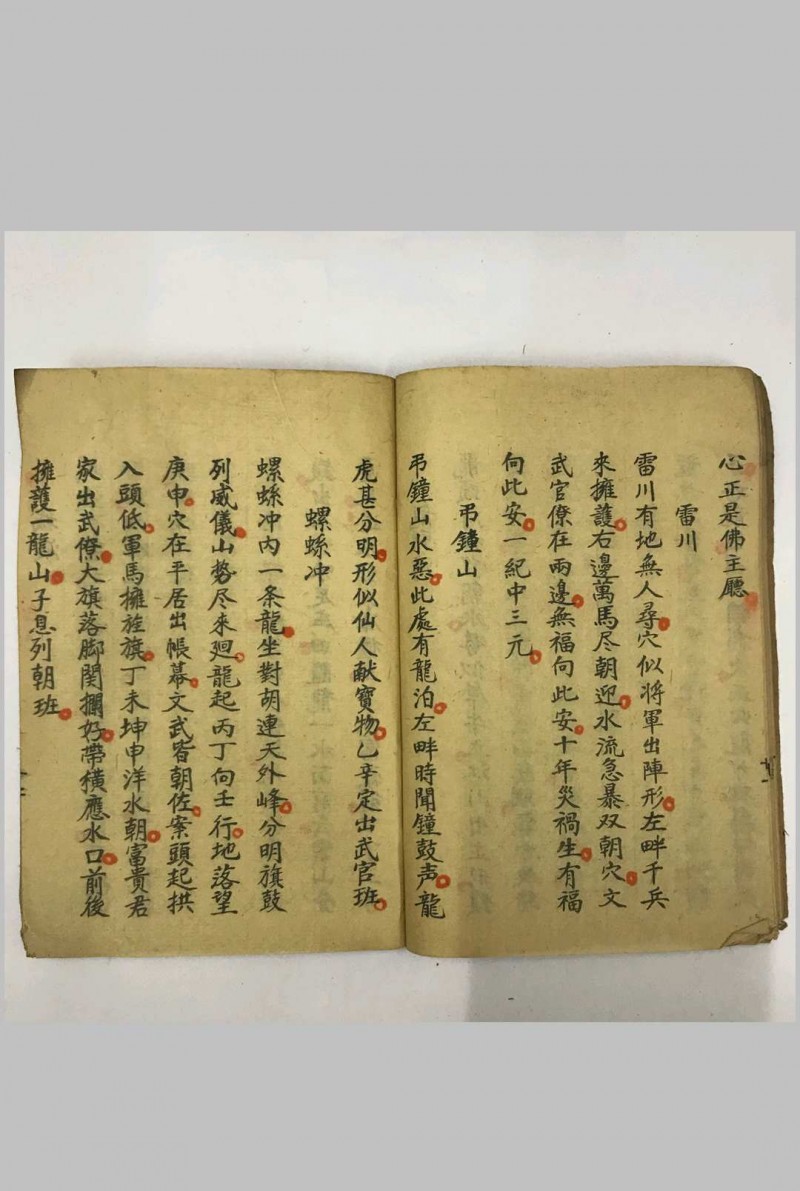 心正是佛主廳
雷川
雷川有地無人尋穴似將軍出陣形左畔千兵
來擁護右邊萬馬尽朝迎水流急暴双朝穴文
武官僚在兩邊無福向此安十年災禍生有福
向此安一紀中三元
弔鐘山
弔鐘山水惡此處有龍泊左畔時聞鐘鼓声龍
虎甚分明形似仙人献寶物乙辛定出武官班
螺蛳冲
螺蛳冲內一条龍坐對胡連天外峰分明旗鼓
列威儀山勢尽來廻龍起丙丁向壬行地落望
庚申穴在平居出帳幕文武皆朝佐案頭起拱
入頭低軍馬擁旌旗丁未坤申洋水朝富貴君
家出武僚大旗落脚閔攔好帶橫應水口前後
擁護一龍山子息列朝班